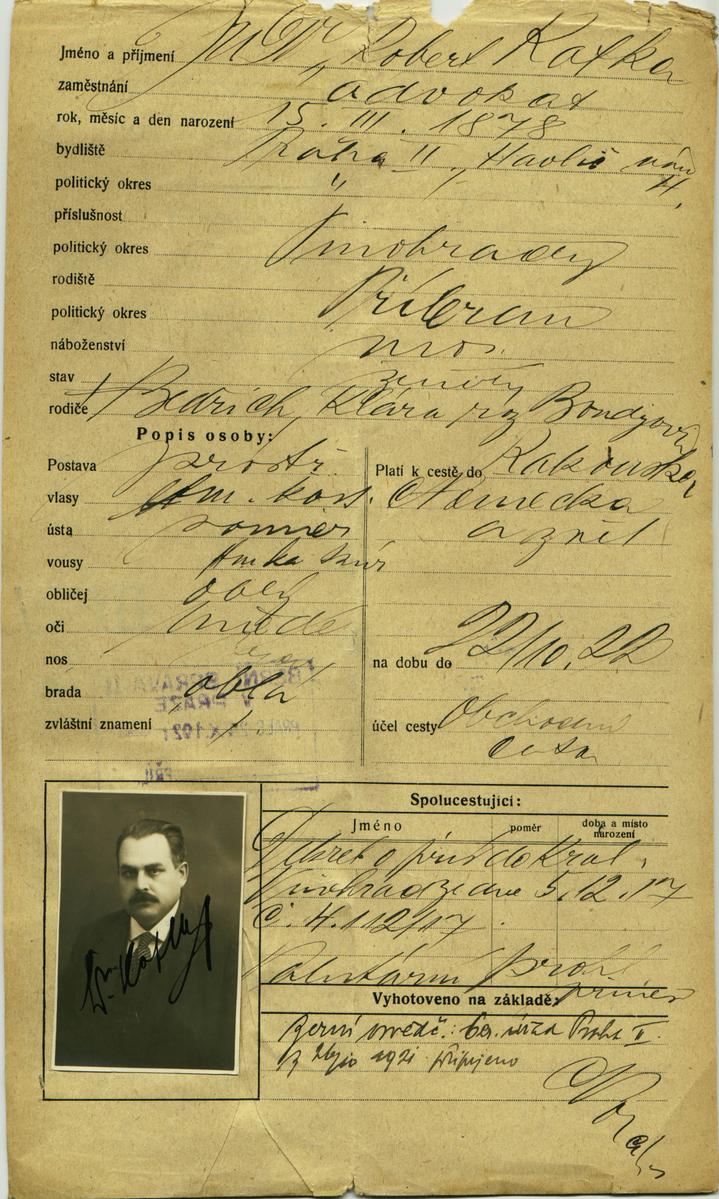 Jméno a příjmení JUDr. Robert Kafka
zaměstnání advokat
rok, měsíc a den narození 15. III. 1878
bydliště Praha II., Havlič. nám
politický okres "
příslušnost
politický okres Vinohrady
rodiště
politický okres Příbram
náboženství mos.
stav ženatý
rodiče Bedřich, Klára roz Bondyová
Popis osoby:
Postava prostř.
vlasy tm. kašt.
ústa
vousy
obličej oblý
oči hnědé
nos
brada oblá
zvláštní znamení
Platí k cestě do Rakouska
Německa
a zpět
na dobu do 22/10. 22
účel cesty Obchodní
cesta
V PRAZE
Spolucestující:
Jméno poměr doba a místo narození
Dekret o přísl. do Král.
Vinohrad ze dne 5. 12. 17
č. H. 112/17
Vyhotoveno na základě:
Berní úřad Praha II.
1921 připojeno
Dr. Kafka